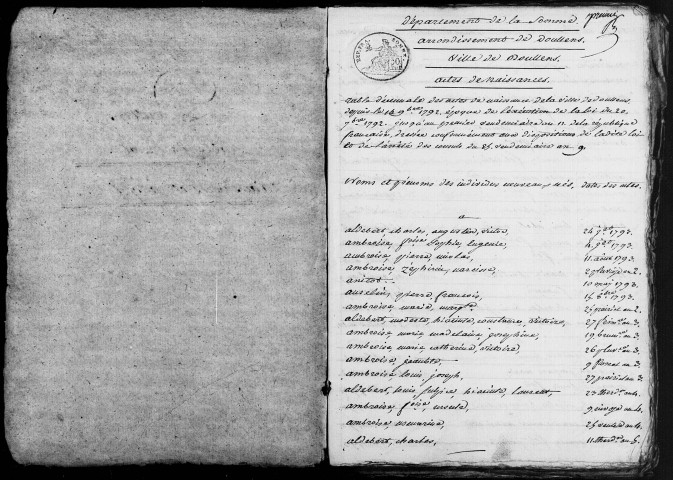 Département de la Somme. premier
arrondissement de Doullens.
Ville de Doullens
actes de Naissances.
table décennale des actes de naissance de la ville de doullens
depuis le 9bre 1792 époque de l'exécution de la loi du 20
7bre 1792. jusqu'au premier vendemiaire an 11 de la république
française, dressée conformément aux dispositions de ladite loi
et de l'arrêté des consuls du 25 vendemiaire an 9.
Noms et prénoms des individus nouveaux nés, dates des actes.
a
aldebert, charles, augustin, victor, 24 1793.
ambroise, foise Sophie, eugenie, 4 1793.
ambroise, pierre nicolas, 11 aout 1793.
ambroise, zéphirin, narcisse, an 2.
anitot 10 mai 1793.
pierre françois, 15 8bre 1793.
ambroise, marie, margte. 25 an 2.
aldebert, modeste, hiacinte, constance, victoire, 27 frim. an 3.
ambroise marie madelaine, josephine, 19 brum. an 3.
ambroise, marie catherine, victoire, 26 pluv. an 3.
ambroise, 9 an 3.
ambroise louis joseph, 27 an 3.
aldebert, louis, hiacinte, 29 therd. an 4.
ambroise, foise, ursule, an 4.
ambroise, 25 an 4.
aldebert, charles, 11 therd. an 5.